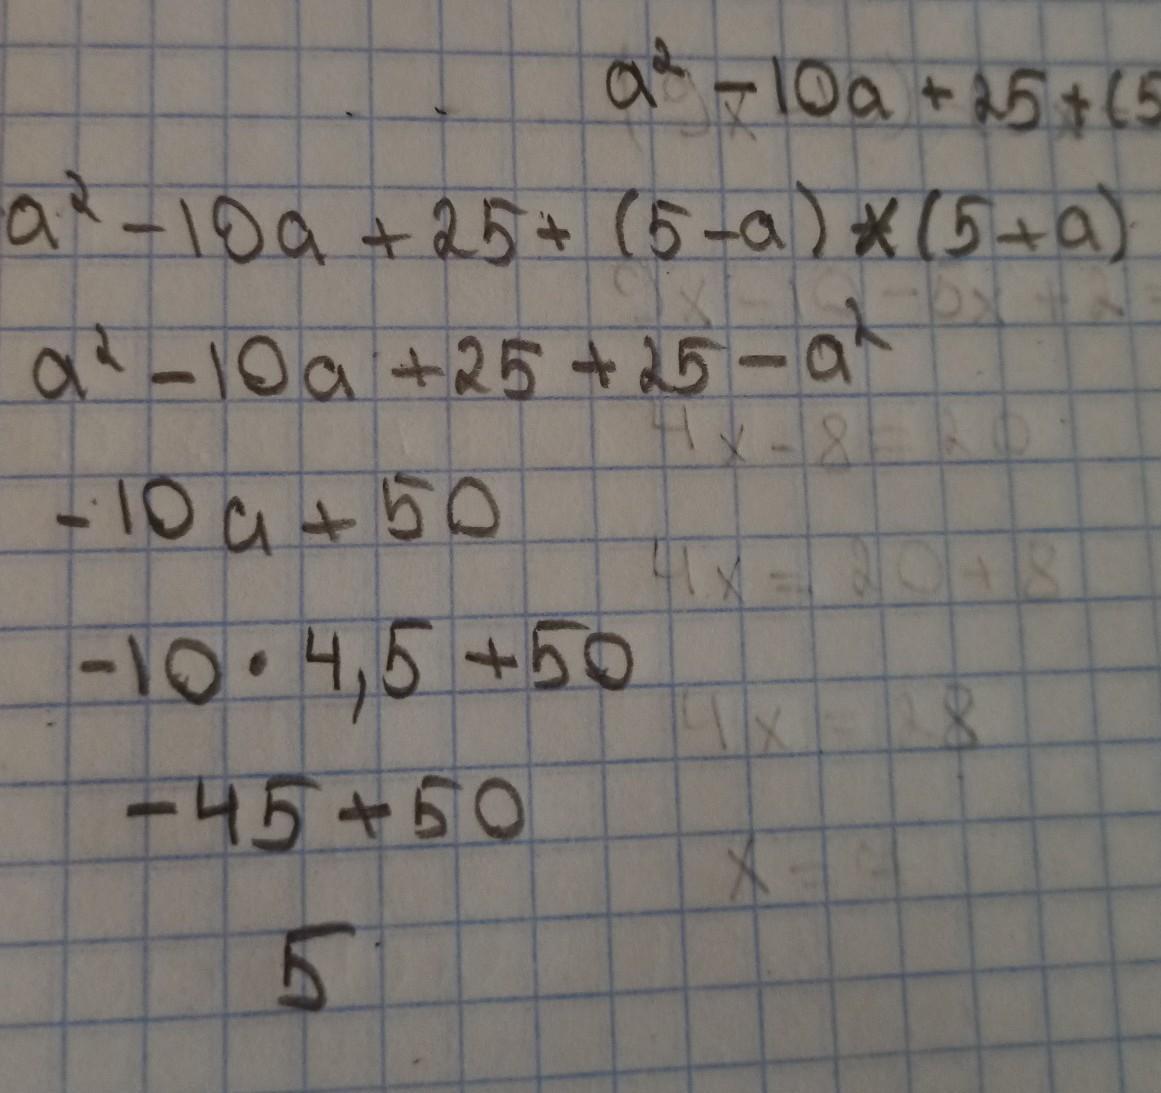 a² - 10a + 25 + (5
a² - 10a + 25 + (5 - a) * (5 + a)
a² - 10a + 25 + 25 - a²
2x - 10 - 5x + 2 =
4x - 8 = 20
-10a + 50
4x = 20 + 8
-10 · 4,5 + 50
4x = 28
-45 + 50
x =
5